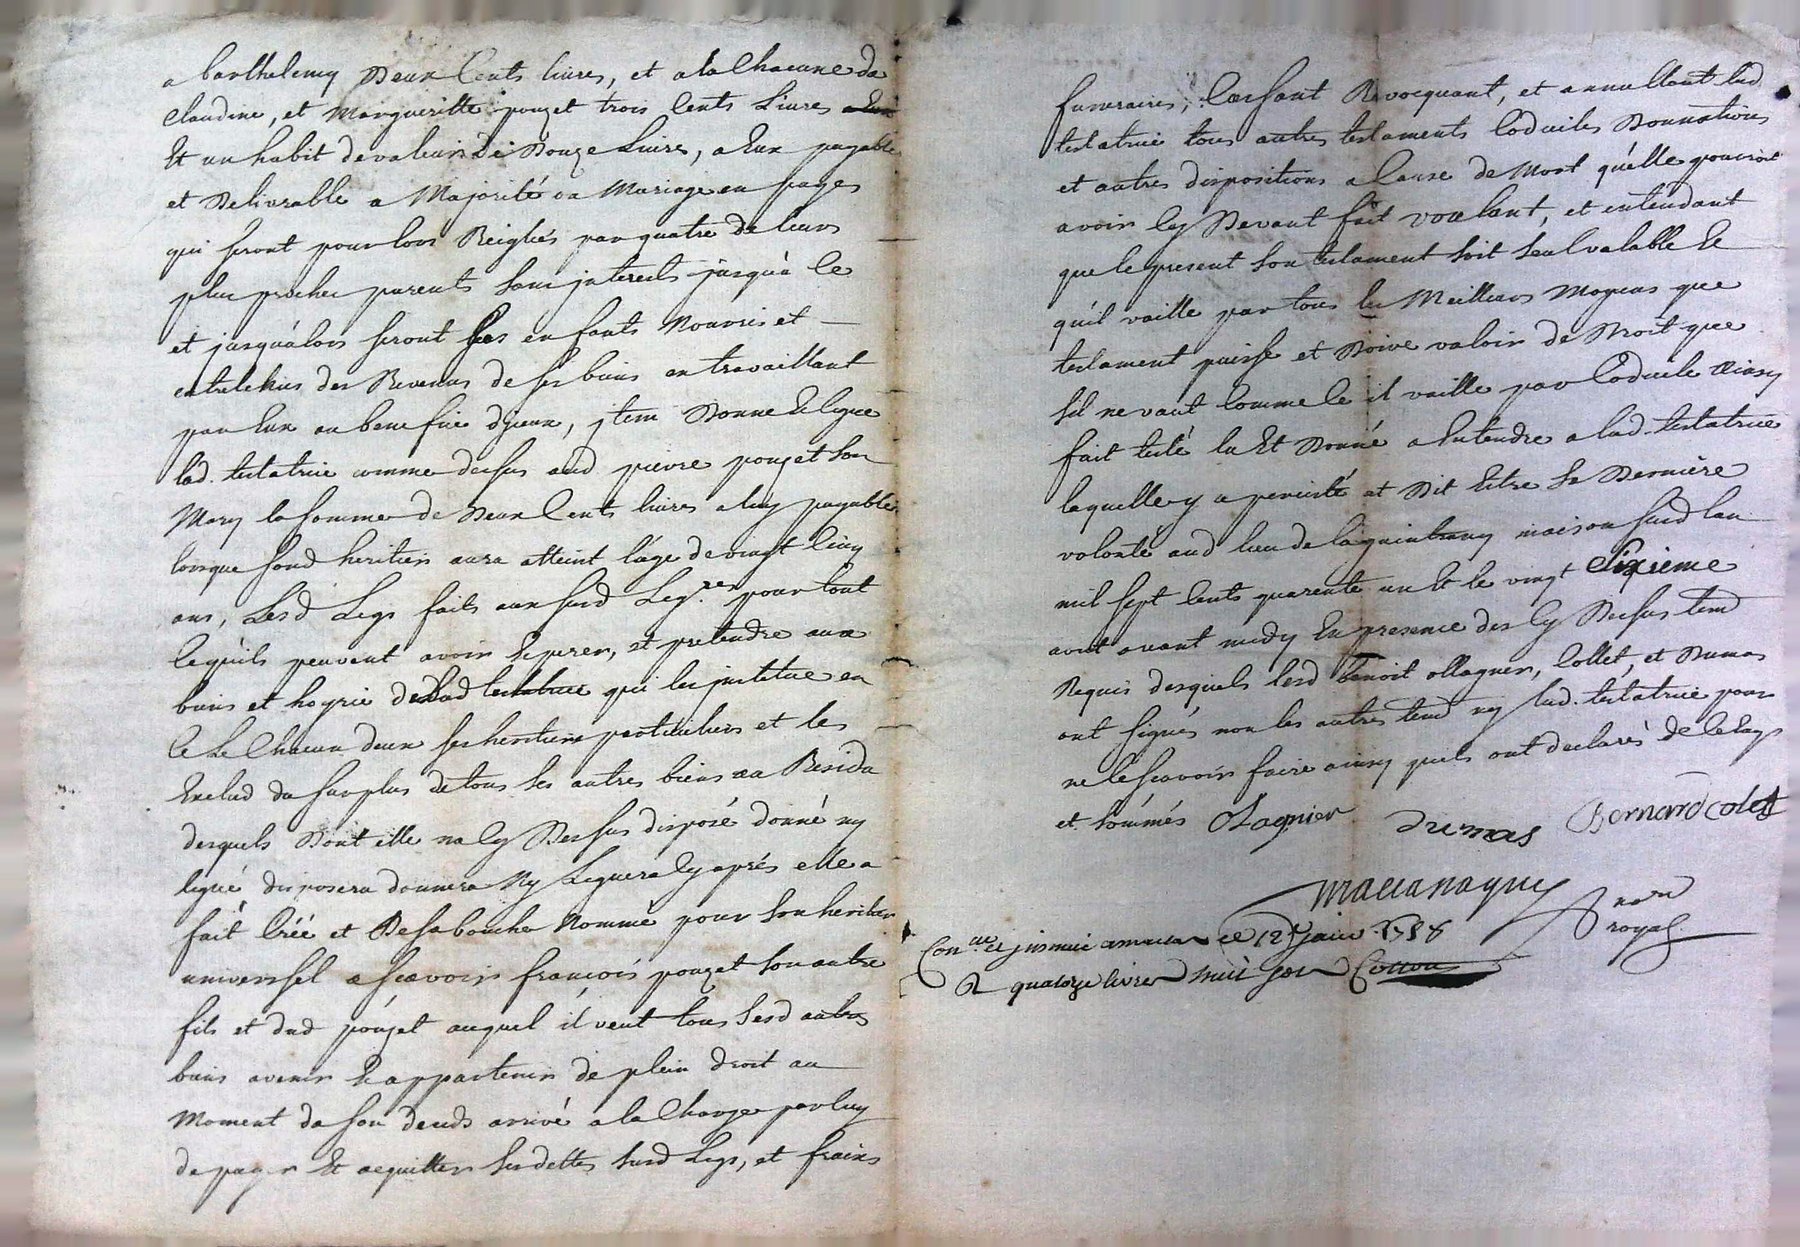 a barthelemy Deux Cents livres, et a la Chacune de
Claudine, et Margueritte pouzet trois Cents Livres
Et un habit de valeur de Douze Livres, a Eux payable
et Delivrable a Majorité ou Mariage en payes
qui seront pour lors Reiglés par quatre de leurs
plus proches parents sans jnterests jusqu'a ce
et jusqu'alors seront ses enfants Nourris et
entretenus des Revenus de ses biens en travaillant
par Eux au benefice d'jceux, jtem Donne Et legue
lad. testatrice comme dessus aud pierre pouzet son
Mary la somme de Deux Cents livres a luy payables
lorsque sond heritier aura atteint l'age de vingt Cinq
ans, Lesd Legs faits aux susd Leg.res pour tout
ce qu'ils peuvent avoir Esperer, et pretendre aux
biens et hoyrie de lad testatrice qui les jnstitue en
ce Le Chacun deux ses heritiers particuliers et les
Exclud du surplus de tous ses autres biens au Residu
desquels Dont elle na Cy Dessus disposé donné ny
legué disposera donnera Ny Leguera Cy aprés elle a
fait Créé et De sa bouche Nommé pour son heritier
universsel a sçavoir françois pouzet son autre
fils et dud pouzet auquel il veut tous Sesd autres
biens avenir Et appartenir de plein droit au
Moment de son deceds arrivé a la Charge par luy
de payer Et acquitter ses dettes susd Legs, et fraix
funeraires, Cassant Revocquant, et annullant lad
testatrice tous autres testaments Codiciles Donnations
et autres dispositions a Cause de Mort qu'elle pouroit
avoir Cy Devant fait voulant, et entendant
que le present son testament soit seul valable Et
qu'il vaille par tous les Meilleurs Moyens que
testament puisse et Doive valoir de Droit que
sil ne vaut Comme Ce il vaille par Codicile ainsy
fait testé lu Et Donné a Entendre a lad. testatrice
laquelle y a percisté et Dit Estre Sa Derniere
volonté aud lieu de maison susd lan
mil sept Cents quarente un Et le vingt Sixieme
avril avant midy En presence des Cy Dessus tem
Requis desquels lesd benoit ollagnier, Collet, et Dumas
ont signés non les autres tem ny lad. testatrice pour
ne le sçavoir faire ainsy quils ont declarés de Ce Enqs
et sommés Olagnier Dumas Bernard Colet
no.re
royal
Con.lé et jnsinué ce 12.e janv. 1758
R quatorze livres huit sols